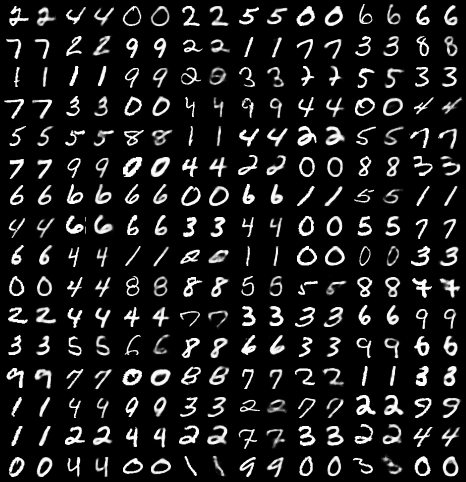 2 2 4 4 0 0 2 2 5 5 0 0 6 6 6 6
7 7 2 2 9 9 2 2 1 1 7 7 3 3 8 8
1 1 1 1 9 9 2 0 3 3 2 2 5 5 3 3
7 7 3 3 0 0 4 4 9 9 4 4 0 0 4 4
5 5 5 5 8 8 1 1 4 4 2 2 5 5 7 7
7 7 9 9 0 0 4 4 2 2 0 0 8 8 3 3
6 6 6 6 6 6 0 0 6 6 1 1 5 5 1 1
4 4 6 6 6 6 3 3 4 4 0 0 5 5 7 7
6 6 4 4 1 1 2 2 1 1 0 0 0 0 3 3
0 0 4 4 8 8 8 8 5 5 5 5 8 8 7 7
2 2 4 4 4 4 7 7 3 3 3 3 6 6 9 9
3 3 5 5 6 6 8 8 6 6 3 3 9 9 6 6
9 9 7 7 0 0 8 8 7 7 2 2 1 1 3 3
1 1 4 4 9 9 3 3 2 2 7 7 2 2 9 9
1 1 2 2 4 4 2 2 7 7 3 3 2 2 4 4
0 0 4 4 0 0 1 1 9 9 0 0 3 3 0 0